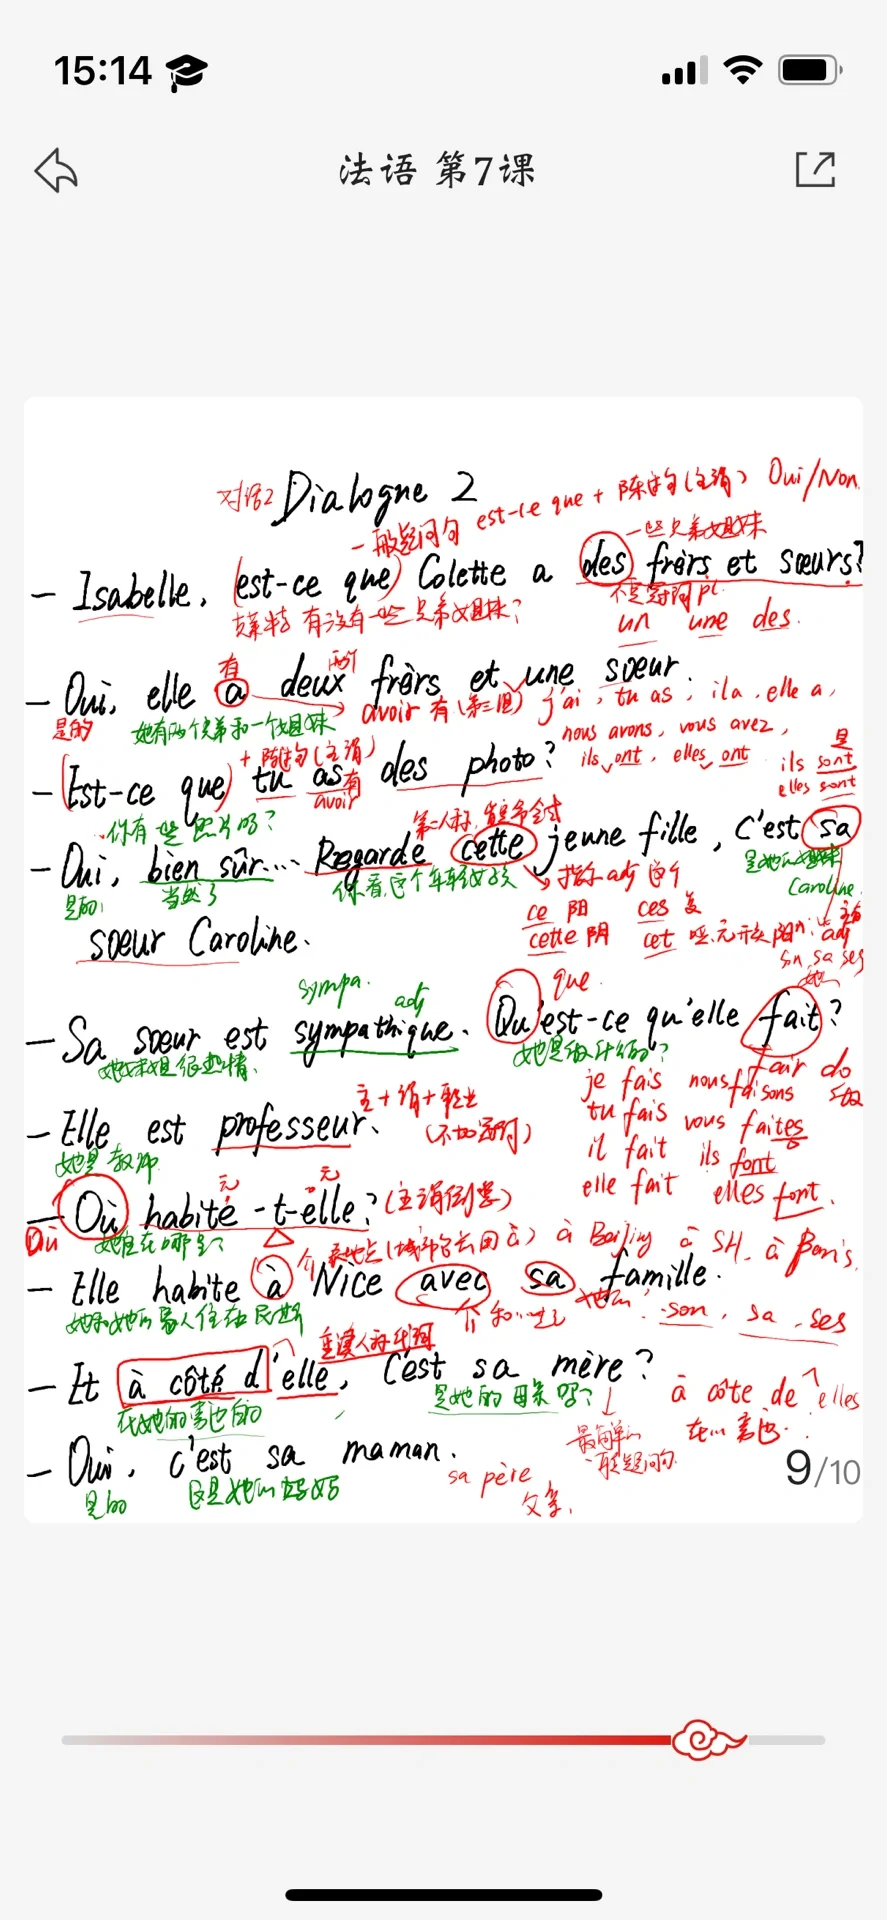 15:14
法语 第7课
对话2 Dialogne 2
一般疑问句 est-ce que + 陈述句(主谓) Oui/Non.
一些兄弟姐妹
— Isabelle, (est-ce que) Colette a des frèrs et sœurs?
克莱特 有没有一些兄弟姐妹? 不定冠词 pl.
un une des.
有 两个
— Oui, elle a deux frèrs et une sœur.
是的 她有两个兄弟和一个姐妹 avoir 有 j'ai, tu as, il a, elle a,
nous avons, vous avez,
ils ont, elles ont
是
ils sont
elles sont
+ 陈述句(主谓)
— (Est-ce que) tu as des photo?
有
avoir
你有一些照片吗?
— Oui, bien sûr... Regarde cette jeune fille, c'est sa
是的 当然了 你看这个年轻女孩 指示adj 这个 Caroline
ce 阳 ces 复
cette 阴 cet
sœur Caroline.
son sa ses
sympa. adj que
— Sa sœur est sympathique. Qu'est-ce qu'elle fait?
她姐姐很热情. 她是做什么的?
fair do 做
je fais nous faisons
tu fais vous faites
il fait ils font
elle fait elles font.
— Elle est professeur.
主+谓+职业
(不加冠词)
她是教师
元 元
— Où habite -t-elle? (主谓倒装)
Où 她住在哪里?
介 表地点(城市名去用à) à Beijing à SH. à Paris.
— Elle habite à Nice avec sa famille.
她和她的家人住在尼斯 介 和...一起 她的 son, sa, ses
重读人称代词
— Et à côté d'elle, C'est sa mère?
在她的旁边的 是她的母亲吗? à côte de elles
在...旁边
最简单的
一般疑问句
— Oui, c'est sa maman.
是的 这是她的妈妈
sa père
父亲.
9/10